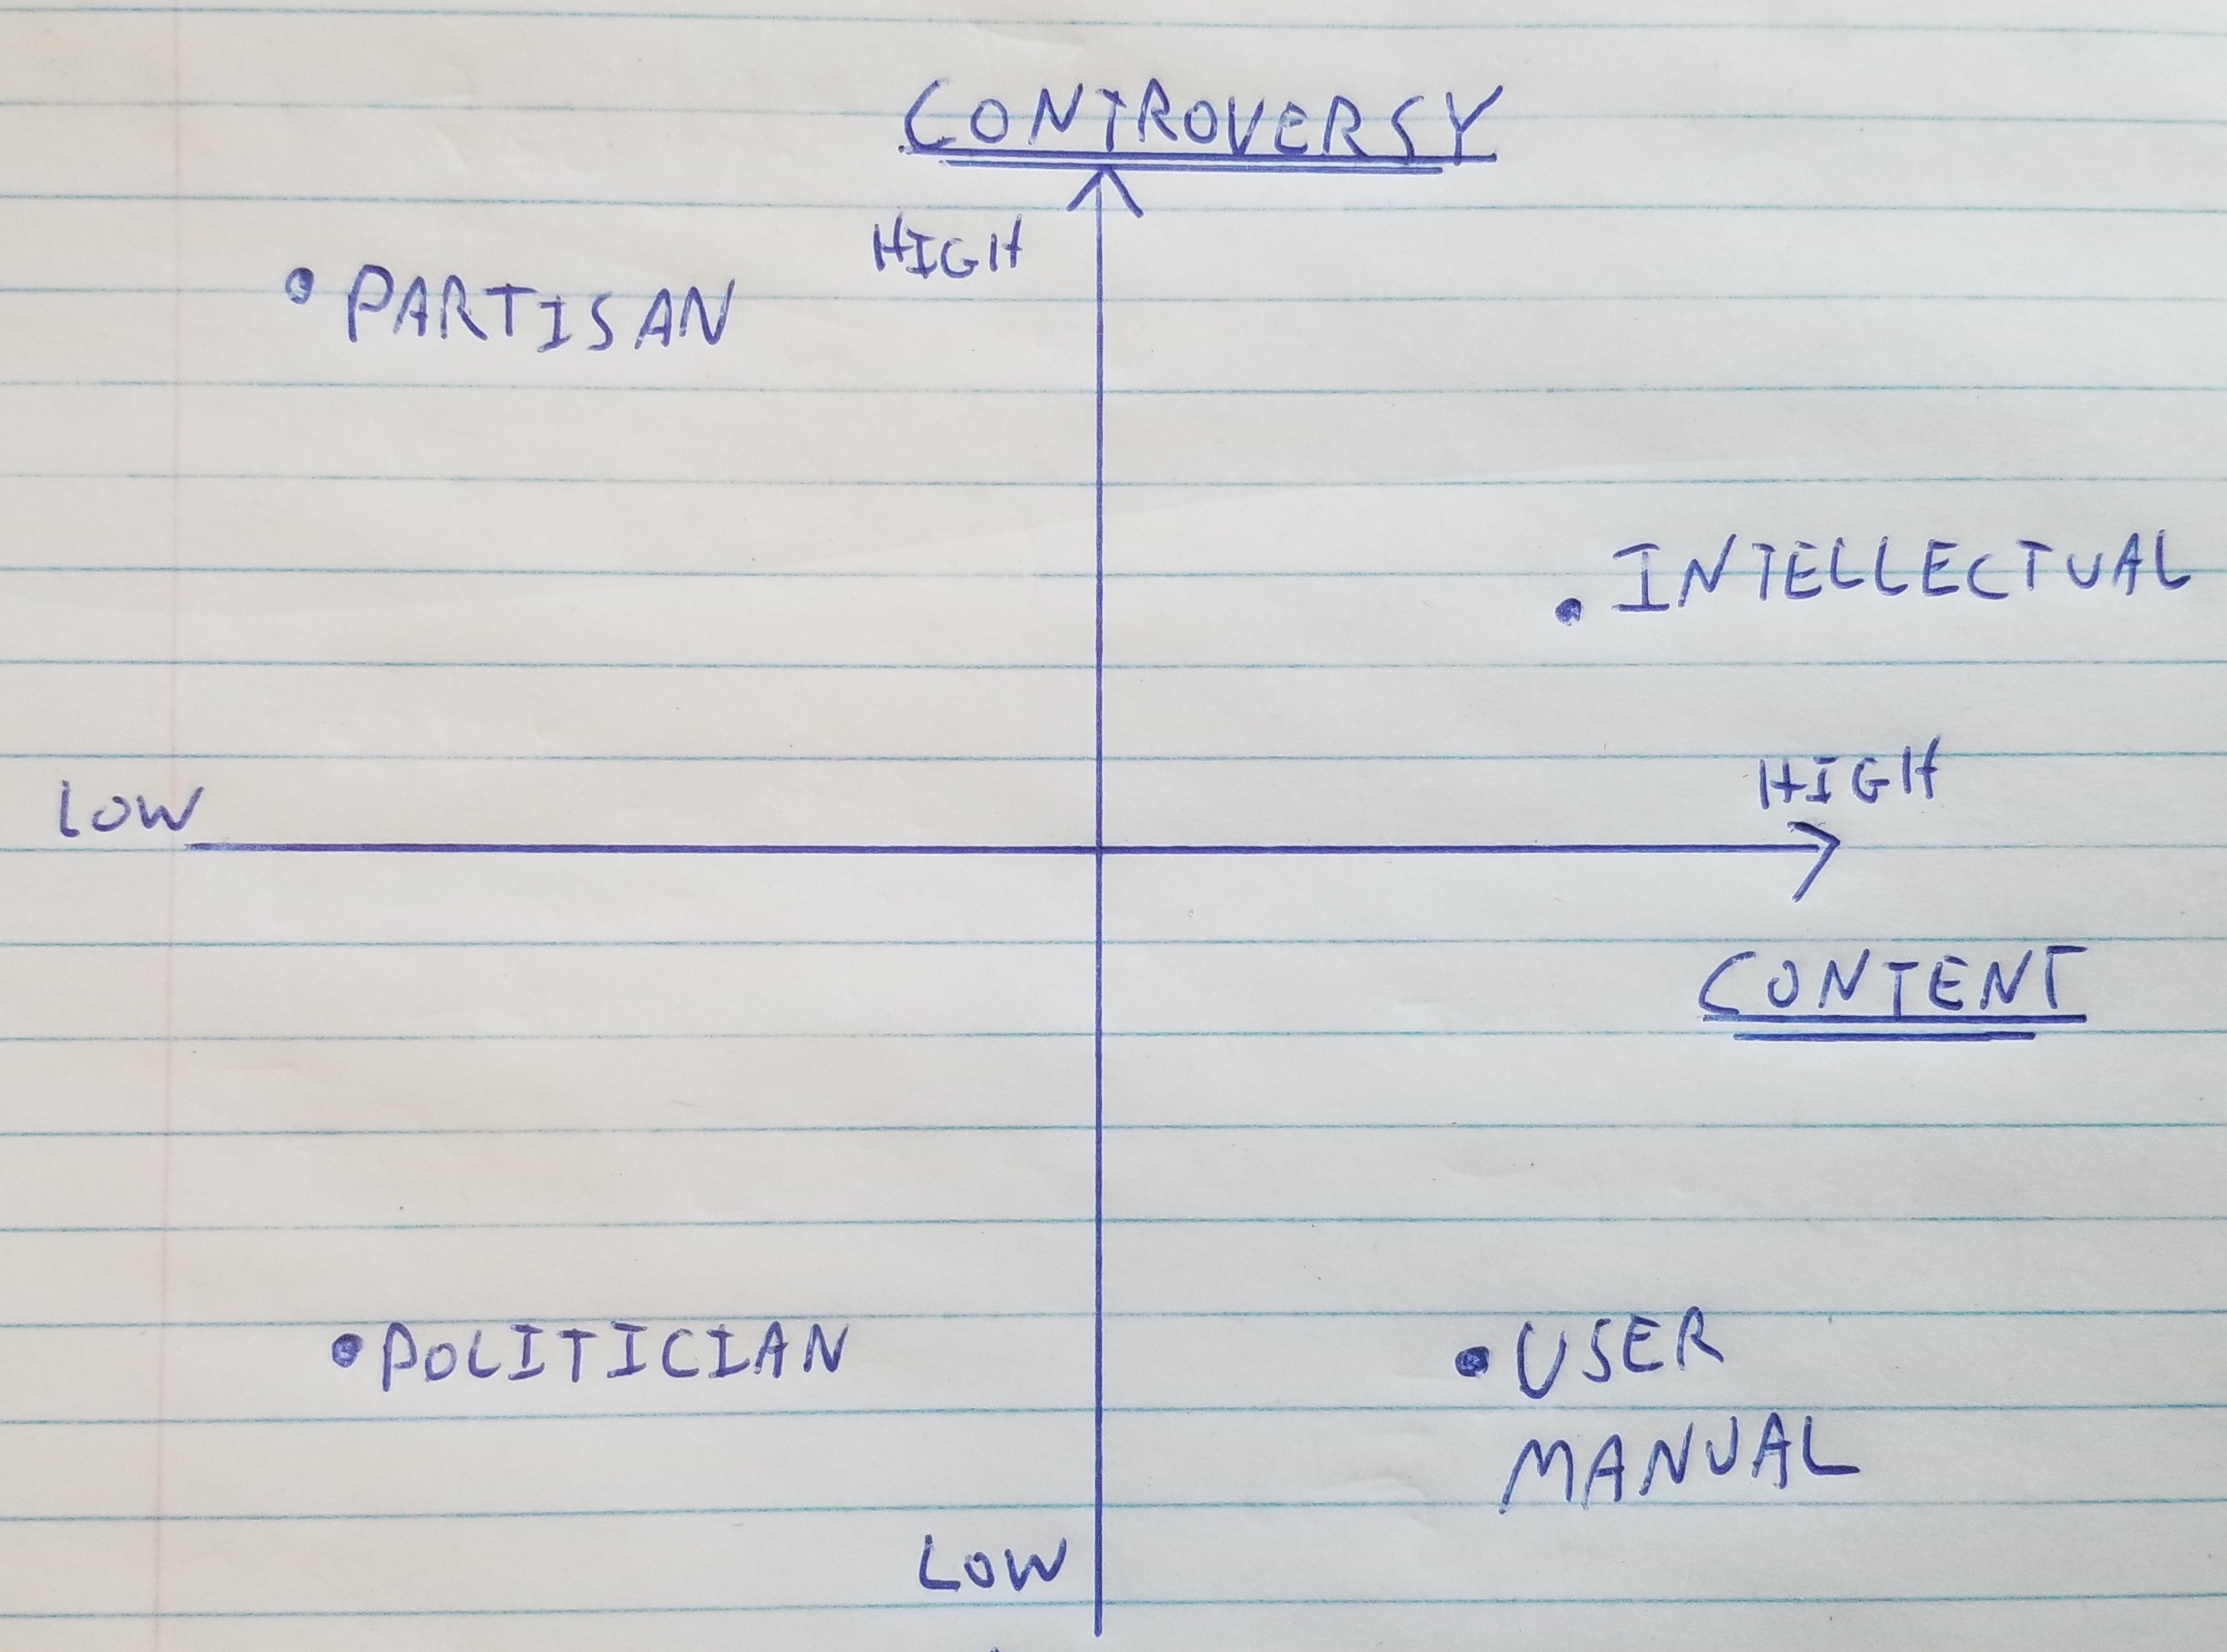 CONTROVERSY
HIGH
PARTISAN
INTELLECTUAL
HIGH
LOW
CONTENT
POLITICIAN
USER
MANUAL
LOW